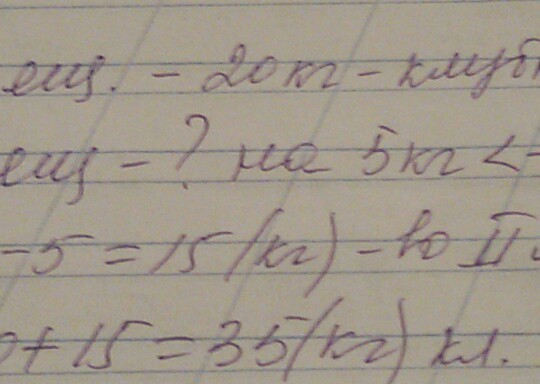 ещ. - 20 кг - клуб
ещ - ? на 5 кг <
-5 = 15 (кг) - во II
+ 15 = 35 (кг) кл.